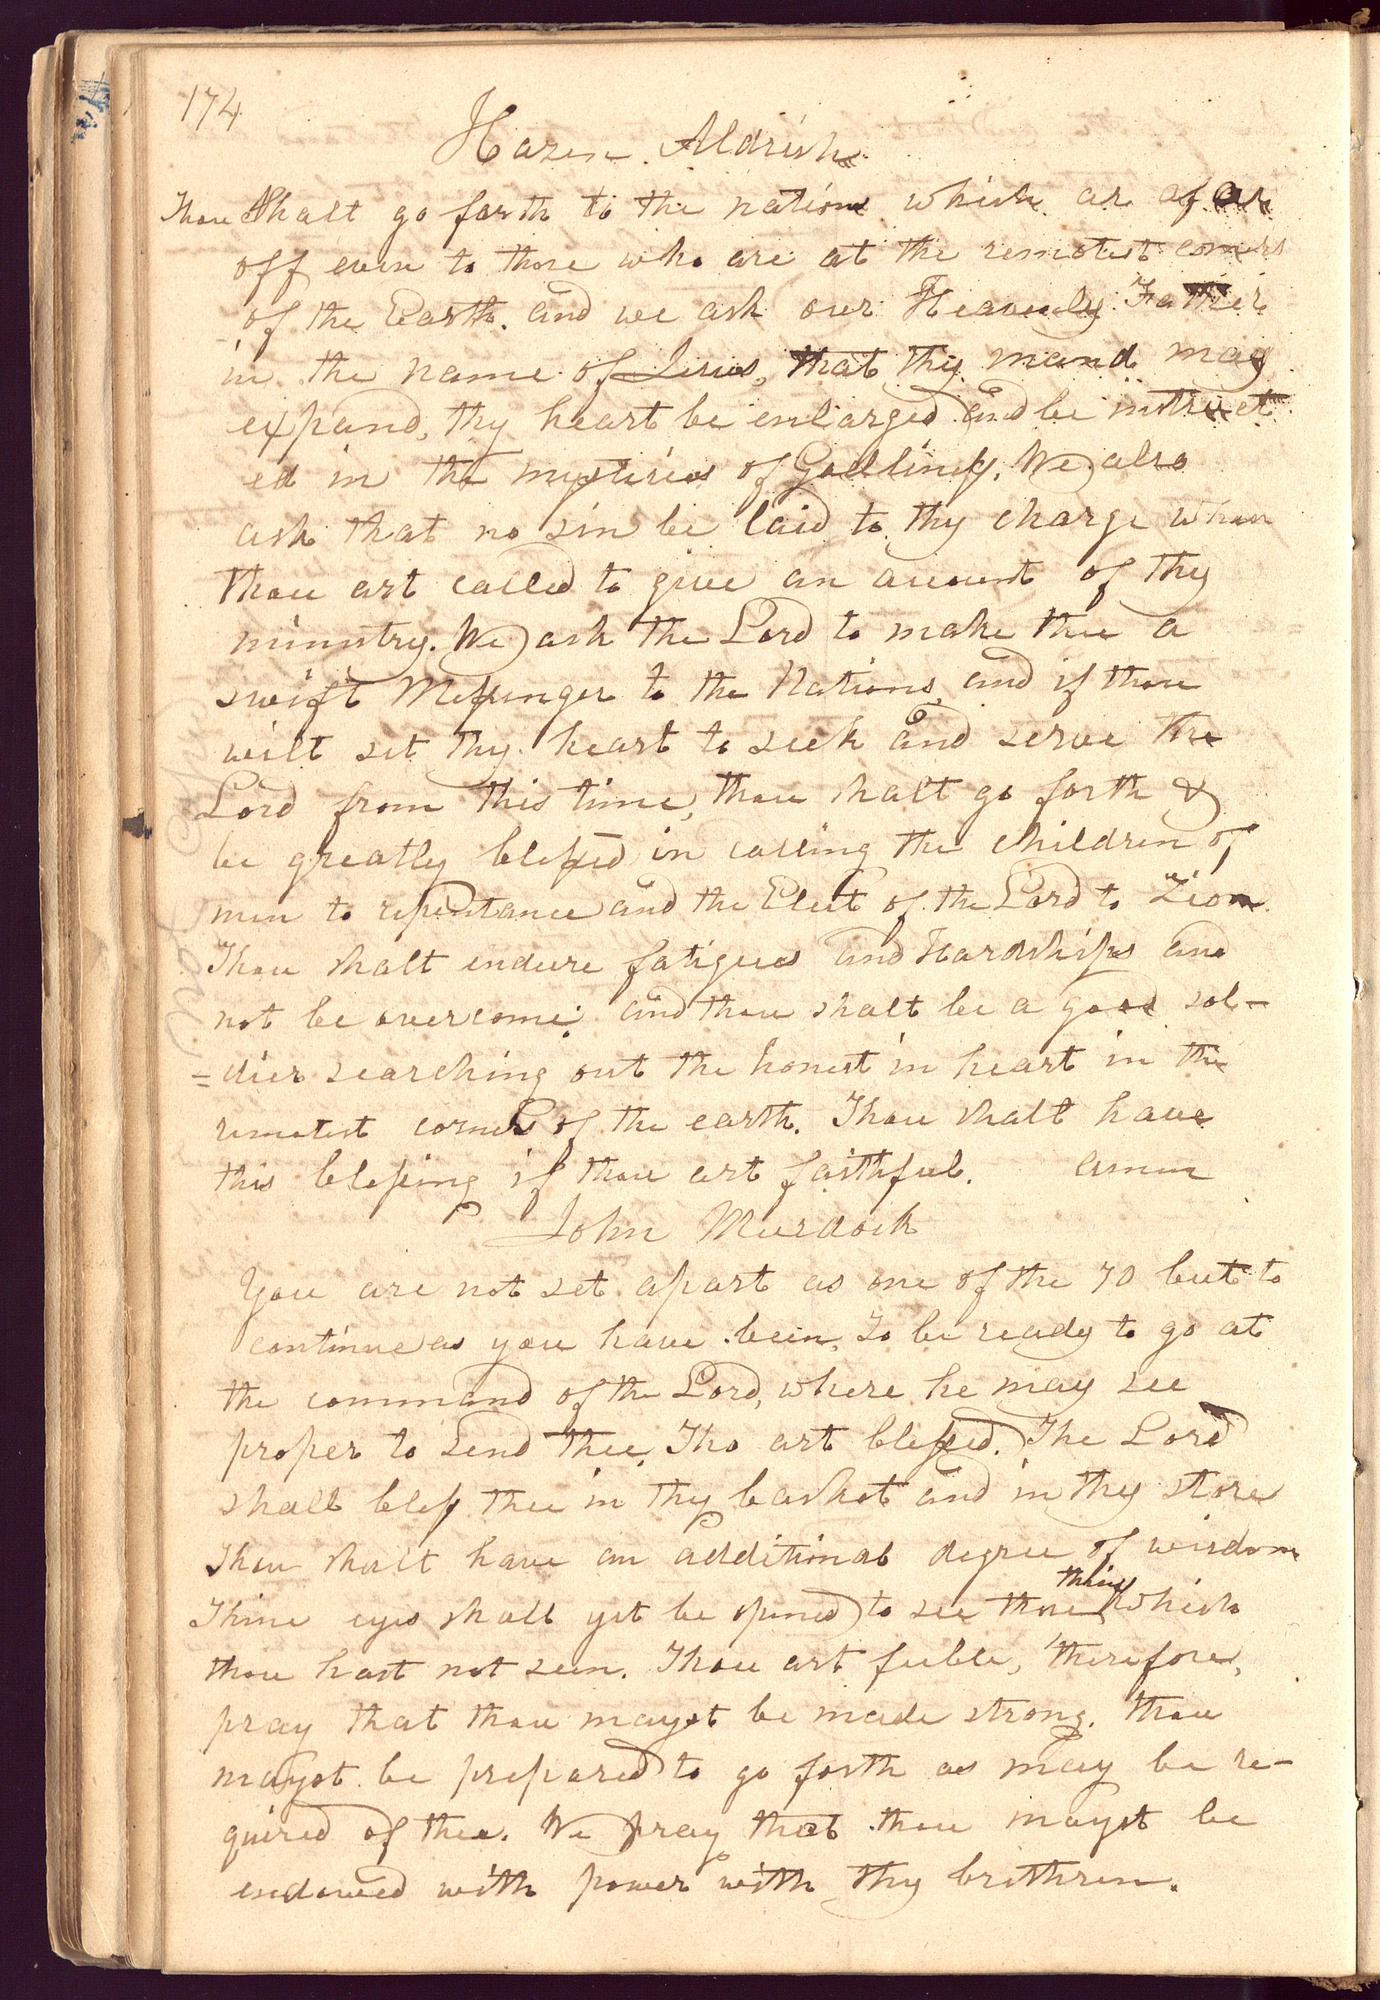 174
Hazen Aldrich
Thou Shalt go forth to the nations which ar afar
off even to those who are at the remotest corners
of the Earth. and we ask our Heavenly Father
in the name of Jesus, that thy mind may
expand, thy heart be enlarged and be instruct
ed in the mysteries of Godliness. We also
ask that no sin be laid to thy charge when
thou art called to give an account of thy
ministry. We ask the Lord to make thee a
swift Messenger to the Nations, and if thou
wilt set thy heart to seek and serve the
Lord from this time, thou shalt go forth &
be greatly blessed in calling the children of
men to repentance and the Elect of the Lord to Zion.
Thou shalt endure fatigues and Hardships and
not be overcome; and thou shalt be a good sol-
=dier searching out the honest in heart in the
remotest corners of the earth. Thou shalt have
this blessing if thou art faithful. amen
John Murdock
You are not set apart as one of the 70 but to
continue as you have been, To be ready to go at
the command of the Lord, where he may see
proper to Send thee, Tho art blessed. The Lord
shall bless thee in thy basket and in thy store
Thou shalt have an additional degree of wisdom
Thine eyes shall yet be opened to see those things which
thou hast not seen. Thou art feeble, therefore,
pray that thou mayst be made strong. thou
mayst be prepared to go forth as may be re-
quired of thee. We pray that thou mayst be
endowed with power with thy brethren.